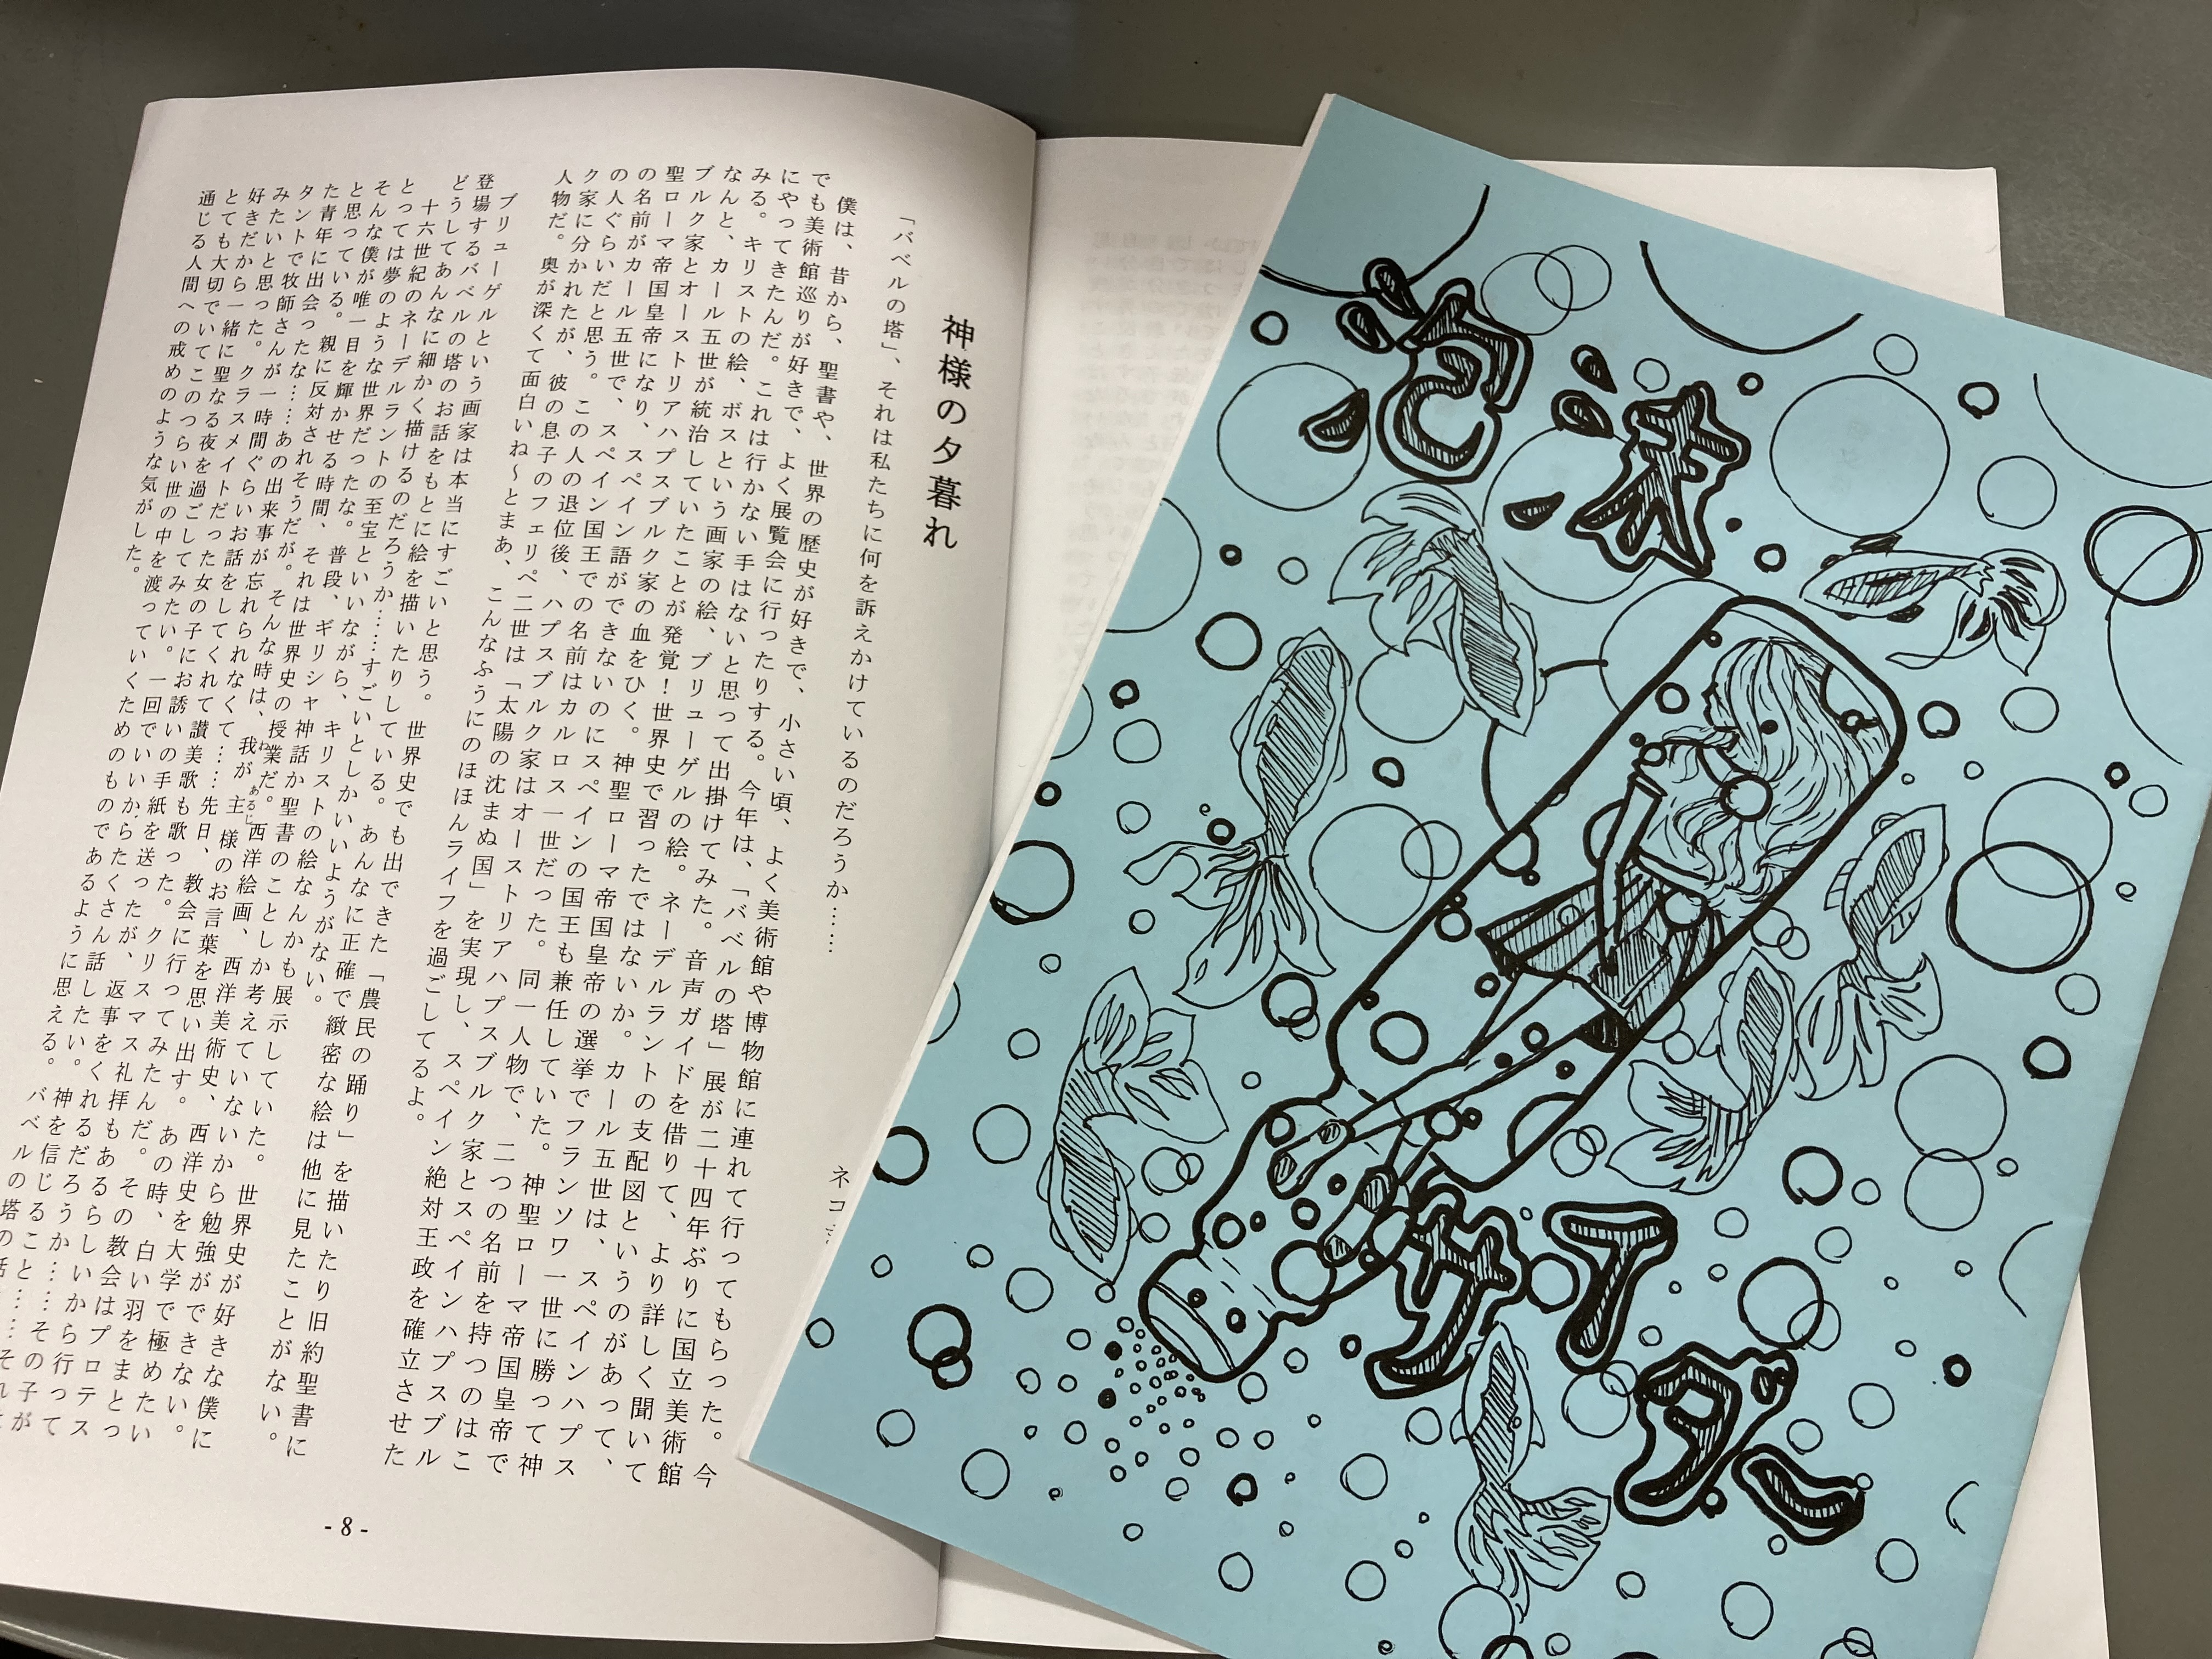 神様の夕暮れ
ネコ
「バベルの塔」、それは私たちに何を訴えかけているのだろうか……
僕は、昔から、聖書や、世界の歴史が好きで、小さい頃、よく美術館や博物館に連れて行ってもらった。今
でも美術館巡りが好きで、よく展覧会に行ったりする。今年は、「バベルの塔」展が二十四年ぶりに国立美術館
にやってきたんだ。これは行かない手はないと思って出掛けてみた。音声ガイドを借りて、より詳しく聞いて
みる。キリストの絵、ボスという画家の絵、ブリューゲルの絵。ネーデルラントの支配図というのがあって、
なんと、カール五世が統治していたことが発覚！世界史で習ったではないか。カール五世は、スペインハプス
ブルク家とオーストリアハプスブルク家の血をひく。神聖ローマ帝国皇帝の選挙でフランソワ一世に勝って神
聖ローマ帝国皇帝になり、スペイン語ができないのにスペインの国王も兼任していた。神聖ローマ帝国皇帝で
の名前がカール五世で、スペイン国王での名前はカルロス一世だった。同一人物で、二つの名前を持つのはこ
の人ぐらいだと思う。この人の退位後、ハプスブルク家はオーストリアハプスブルク家とスペインハプスブル
ク家に分かれたが、彼の息子のフェリペ二世は「太陽の沈まぬ国」を実現し、スペイン絶対王政を確立させた
人物だ。奥が深くて面白いね～とまあ、こんなふうにのほほんライフを過ごしてるよ。
ブリューゲルという画家は本当にすごいと思う。世界史でも出できた「農民の踊り」を描いたり旧約聖書に
登場するバベルの塔のお話をもとに絵を描いたりしている。あんなに正確で緻密な絵は他に見たことがない。
どうしてあんなに細かく描けるのだろうか……すごいとしかいいようがない。
十六世紀のネーデルラントの至宝といいながら、キリストの絵なんかも展示していた。世界史が好きな僕に
とっては夢のような世界だったな。普段、ギリシャ神話か聖書のことしか考えていないから勉強ができない。
そんな僕が唯一目を輝かせる時間、それは世界史の授業だ。西洋絵画、西洋美術史、西洋史を大学で極めたい
と思っている。親に反対されそうだが。そんな時は、我が主様のお言葉を思い出す。あの時、白い羽をまとっ
た青年に出会ったな……あの出来事が忘れられなくて……先日、教会に行ってみたんだ。その教会はプロテス
タントで牧師さんが一時間ぐらいお話をしてくれて讃美歌も歌った。クリスマス礼拝もあるらしいから行って
みたいと思った。クラスメイトだった女の子にお誘いの手紙を送ったが、返事をくれるだろうか……その子が
好きだから一緒に聖なる夜を過ごしてみたい。一回でいいからたくさん話したい。神を信じること……それ
とても大切でいてこのつらい世の中を渡っていくためのものであるように思える。バベルの塔の話
通じる人間への戒めのような気がした。
- 8 -
泡沫
サイダー